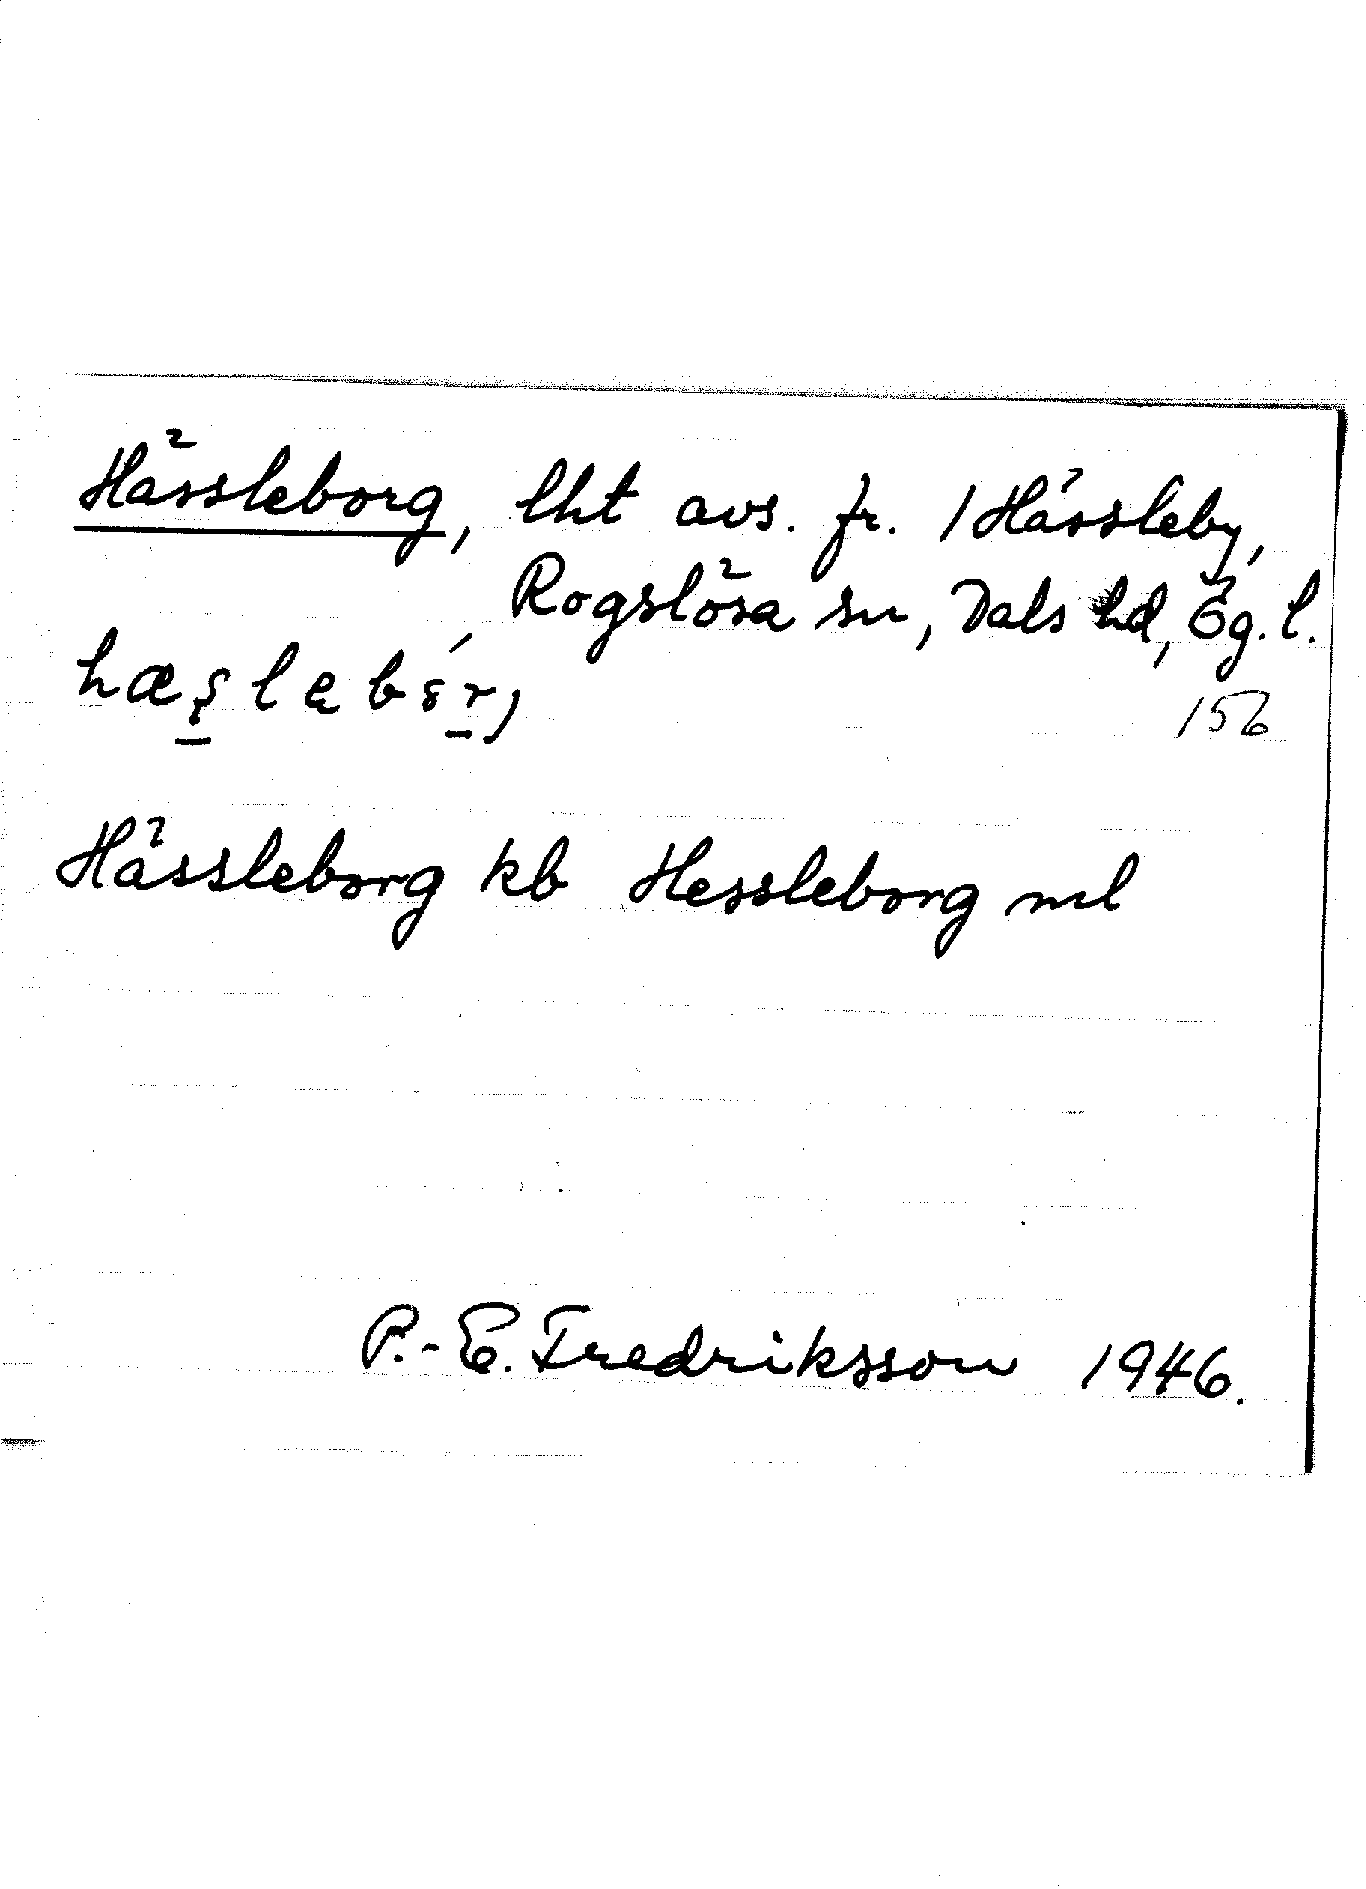 Hässleborg, lht avs. fr. 1 Hässleby,
Rogslösa sn, Dals hd, Ög. l.
156
Hässleborg kb Hessleborg ml
P.-E. Fredriksson 1946.